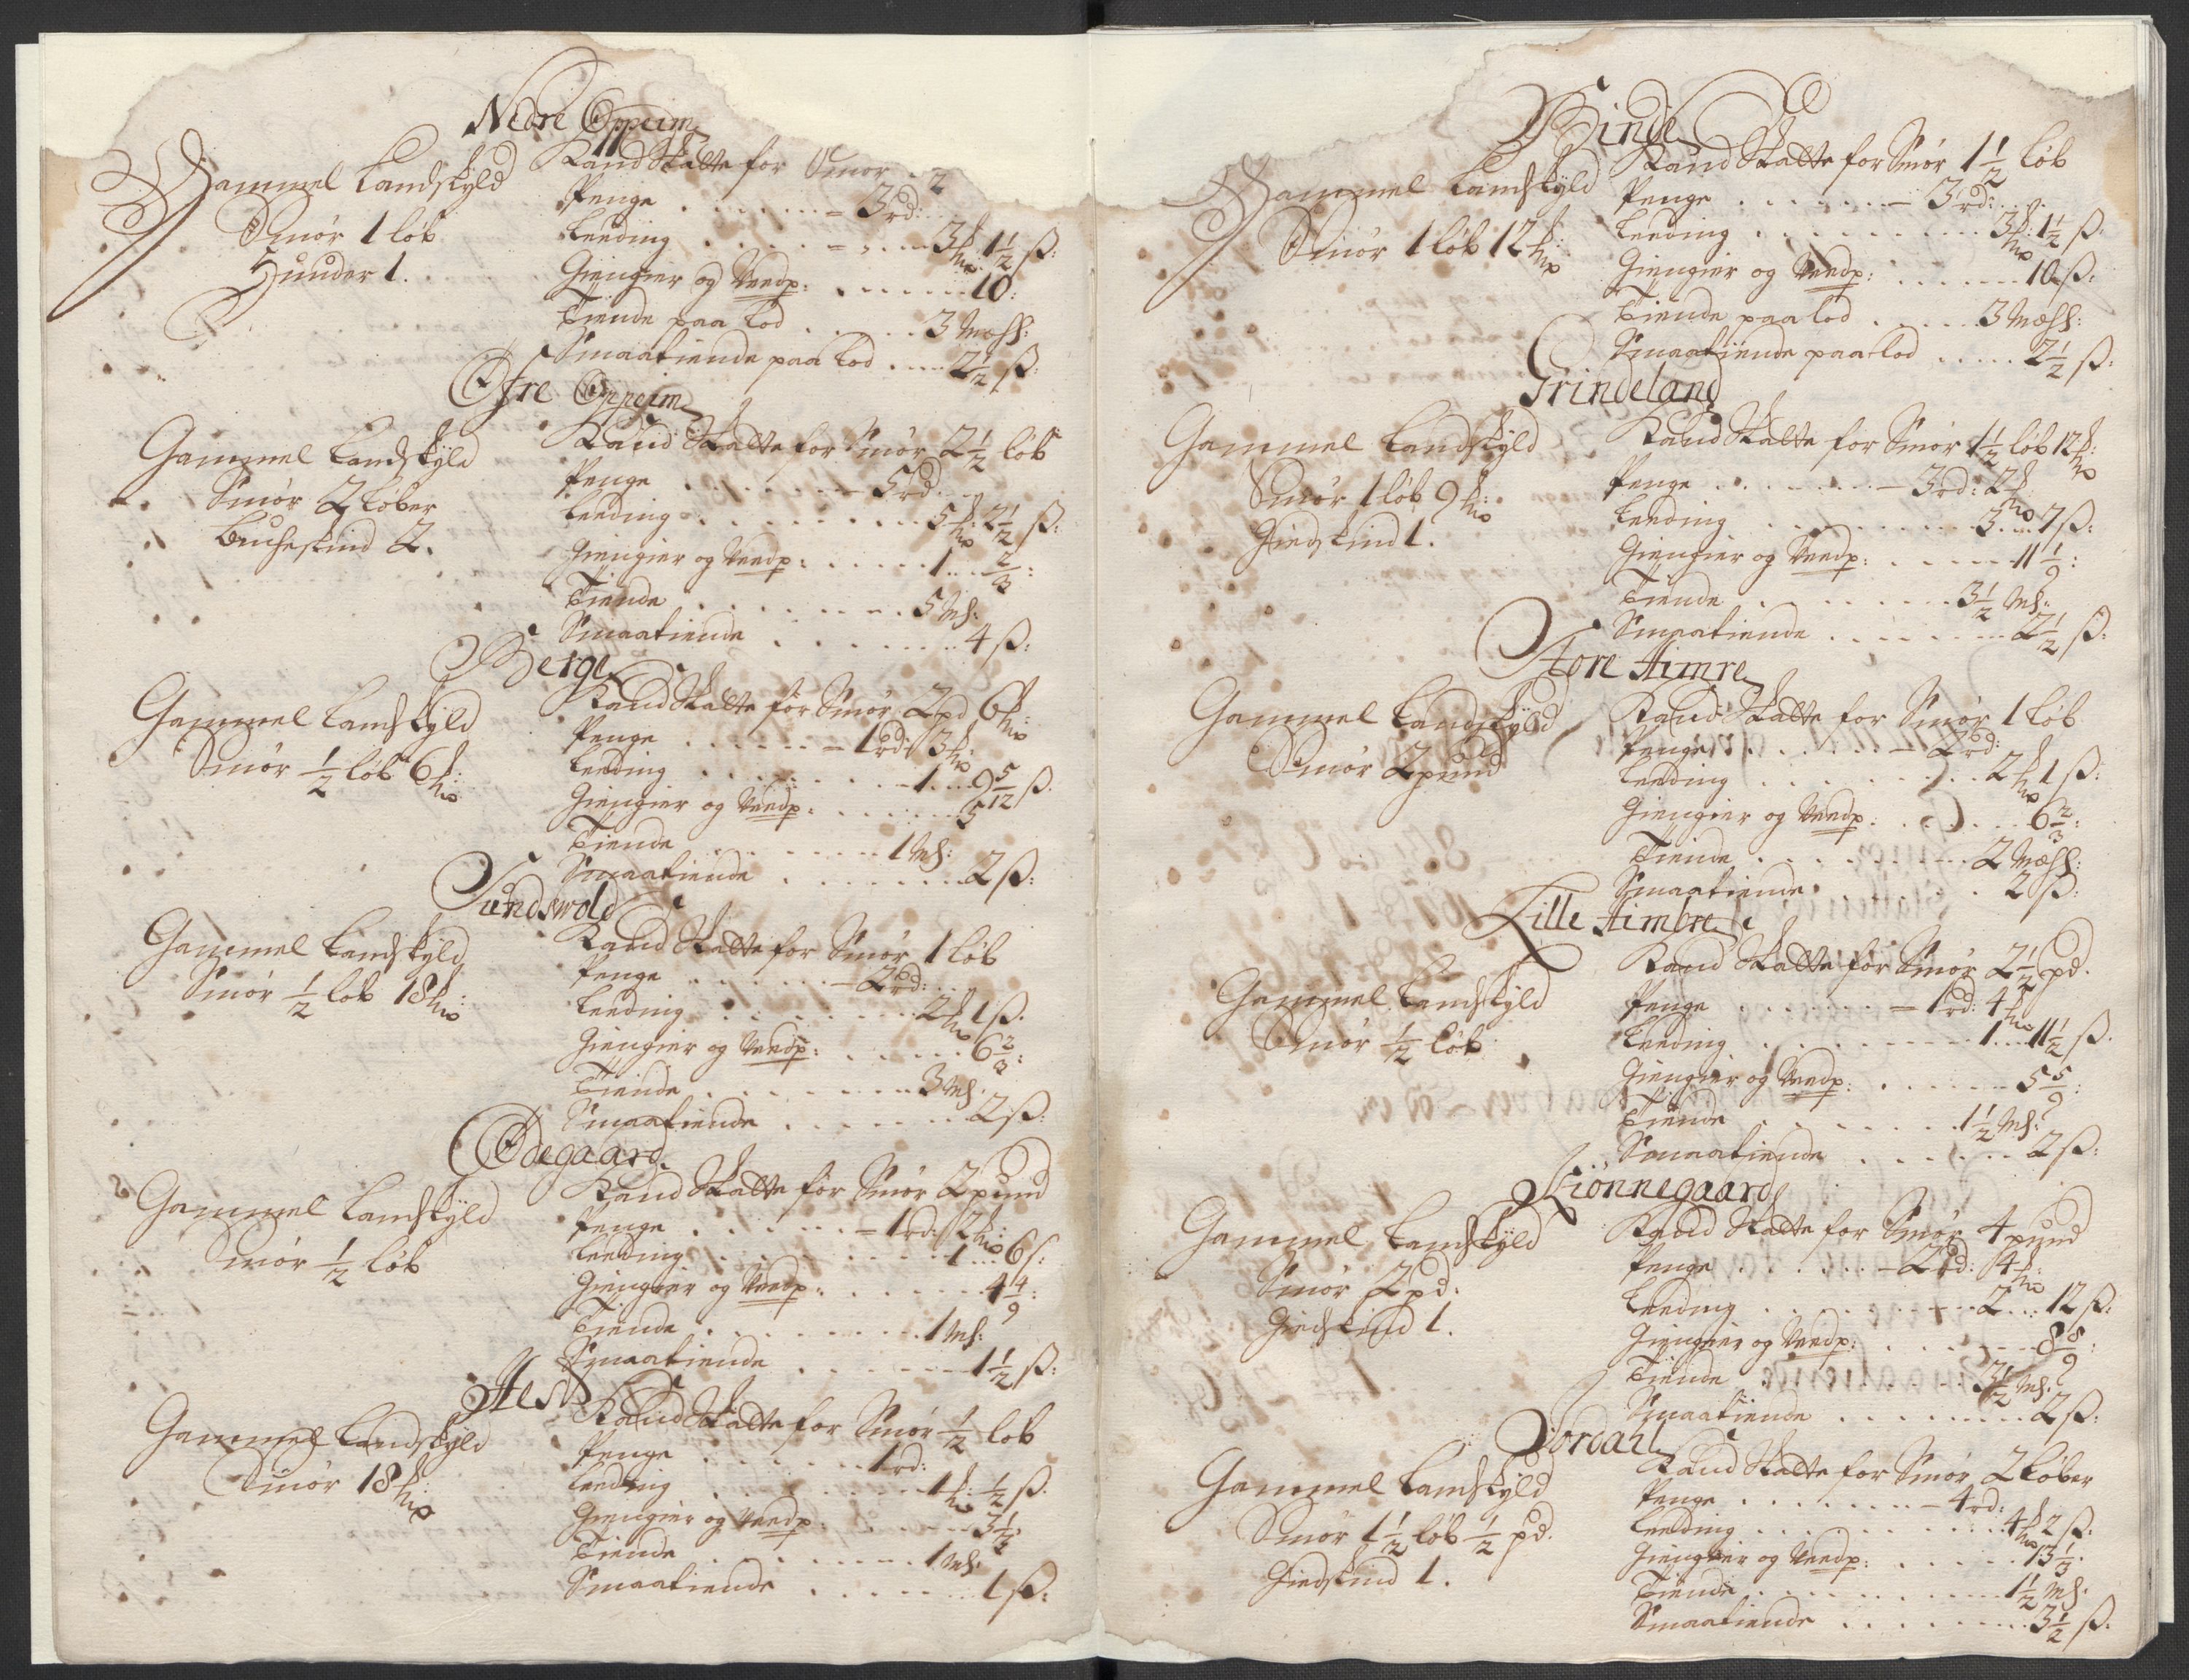 Nedre Oppeim
Gammel Landskyld
Smør 1 løb
Huuder 1.
Kand Skatte for Smør 2
Penge . . . . . . 3 rd:
Leeding . . . . . 3 mk 1½ ß:
Giengier og Veedp: . . . . . . 10:
Tiende paa Lod . . . . . 3 Mæhl:
Smaatiende paa Lod . . . . 2½ ß:
Øfre Oppeim
Gammel Landskyld
Smør 2 Løber
Bucheskind 2.
Kand Skatte for Smør 2½ løb
Penge . . . . . . 5 rd.
Leeding . . . . . . . . 5 mk: 2½ ß:
Giengier og Veedp: . . . . . 1 . . ⅔:
Tiende . . . . . . . . 5 Mh:
Smaatiende . . . . . . . . 4 ß:
Berge
Gammel Landskyld
Smør ½ løb 6 mk:
Kand Skatte for Smør 2 pd 6 mk:
Penge . . . . . . 1 rd: 3 mk:
Leeding . . . . . . . . 1 . . . 9 5/12 ß.
Giengier og Veedp: . . . . . . . 5
Tiende . . . . . . . . 1 Mh:
Smaatiende . . . . . . . . 2 ß:
Sundswold
Gammel Landskyld
Smør ½ løb 18 mk:
Kand Skatte for Smør 1 løb
Penge . . . . . . 2 rd:
Leeding . . . . . . . . 2 mk 1 ß.
Giengier og Veedp: . . . . . . 6⅔:
Tiende . . . . . . . . 3 Mh.
Smaatiende . . . . . . . 2 ß:
Ødegaard
Gammel Landskyld
Smør ½ løb
Kand Skatte for Smør 2 pund
Penge . . . . . . 1 rd: 2 mk:
Leeding . . . . . . . . 1 . . . 6 ß:
Giengier og Veedp: . . . . . . . 4 4/9:
Tiende . . . . . . . . 1 Mh:
Smaatiende . . . . . . . 1½ ß:
Gammel Landskyld
Smør 18 mk:
Kand Skatte for Smør ½ løb
Penge . . . . . . . 1 rd:
Leeding . . . . . . . . 1 mk: ½ ß.
Giengier og Veedp: . . . . . . 3⅓:
Tiende . . . . . . . . 1 Mh:
Smaatiende . . . . . . . . 1 ß:
Binde
Gammel Landskyld
Smør 1 løb 12 mk:
Kand Skatte for Smør 1½ løb
Penge . . . . . . . 3 rd: . . .
Leeding . . . . . . . . . 3 mk: 1½ ß.
Giengier og Veedp: . . . . . . . 10 ß:
Tiende paa lod . . . . . 3 Mæhl:
Smaatiende paa lod . . . . . 2½ ß:
Grindeland
Gammel Landskyld
Smør 1 løb 9 mk:
Giedskind 1.
Kand Skatte for Smør 1½ løb 12 mk:
Penge . . . . . . . 3 rd: 2 mk
Leeding . . . . . . . . . 3 . . . 7 ß:
Giengier og Veedp: . . . . . . 11 1/9:
Tiende . . . . . . . . 3½ Mh:
Smaatiende . . . . . . . . 2½ ß:
Store Himre
Gammel Landskyld
Smør 2 pund
Kand Skatte for Smør 1 løb
Penge . . . . . . . 2 rd:
Leeding . . . . . . . . . 2 mk 1 ß:
Giengier og Veedp: . . . . . . 6⅔:
Tiende . . . . . . . . . 2 Mæhl:
Smaatiende . . . . . . . . 2 ß:
Lille Himbre
Gammel Landskyld
Smør ½ løb
Kand Skatte for Smør 2½ pd.
Penge . . . . . . . 1 rd: 4 mk
Leeding . . . . . . . . . 1 . . . 11½ ß.
Giengier og Veedp: . . . . . . . 5 5/9:
Tiende . . . . . . . . 1½ Mh:
Smaatiende . . . . . . . . 2 ß:
Kiønnegaard
Gammel Landskyld
Smør 2 pd.
Giedskind 1.
Kand Skatte for Smør 4 pund
Penge . . . . . . 2 rd: 4 mk:
Leeding . . . . . . . . . 2 . . . 12 ß:
Giengier og Veedp: . . . . . . . 8 8/9:
Tiende . . . . . . . . . 3½ Mh.
Smaatiende . . . . . . . . . 2 ß:
Jordahl
Gammel Landskyld
Smør 1½ løb ½ pd.
Giedskind 1.
Kand Skatte for Smør 2 Løber
Penge . . . . . . . . 4 rd:
Leeding . . . . . . . . . . 4 mk 2 ß:
Giengier og Veedp: . . . . . . 13⅓.
Tiende . . . . . . . . . . 1½ Mh:
Smaatiende . . . . . . . . 3½ ß: